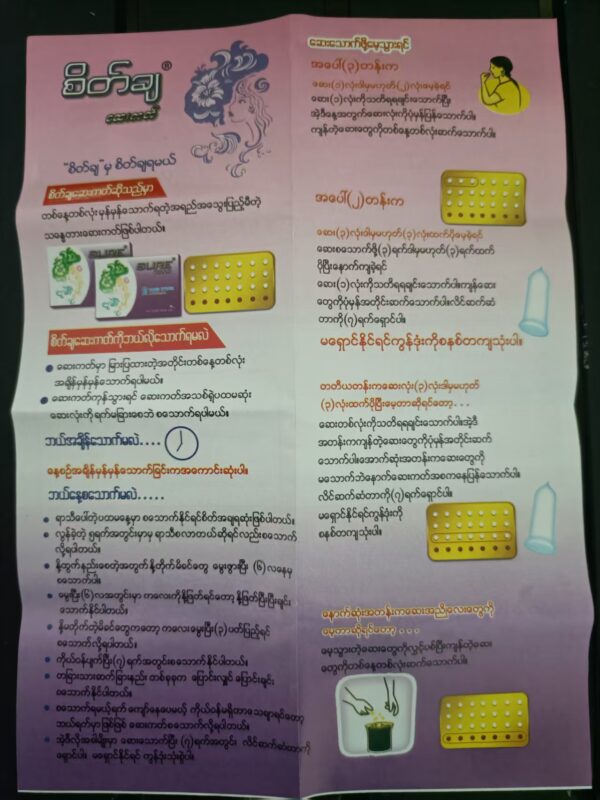 စိတ်ချ®
ဆေးကတ်
"စိတ်ချ" မှ စိတ်ချရမယ်
စိတ်ချဆေးကတ်ဆိုသည်မှာ
တစ်နေ့တစ်လုံးမှန်မှန်သောက်ရတဲ့အရည်အသွေးပြည့်မီတဲ့
သန္ဓေတားဆေးကတ်ဖြစ်ပါတယ်။
SURE
SURE
စိတ်ချဆေးကတ်ကိုဘယ်လိုသောက်ရမလဲ
ဆေးကတ်မှာ မြားပြထားတဲ့အတိုင်းတစ်နေ့တစ်လုံး
အချိန်မှန်မှန်သောက်ရပါမယ်။
ဆေးကတ်ကုန်သွားရင် ဆေးကတ်အသစ်ရဲ့ပထမဆုံး
ဆေးလုံးကို ရက်မခြားစေဘဲ စသောက်ရပါမယ်။
ဘယ်အချိန်သောက်မလဲ....
နေ့စဉ်အချိန်မှန်မှန်သောက်ခြင်းကအကောင်းဆုံးပါ။
ဘယ်နေ့စသောက်မလဲ.....
ရာသီပေါ်တဲ့ပထမနေ့မှာ စသောက်နိုင်ရင်စိတ်အချရဆုံးဖြစ်ပါတယ်။
လွန်ခဲ့တဲ့ ၅ရက်အတွင်းမှာမှ ရာသီစလာတယ်ဆိုရင်လည်းစသောက်
လို့ရပါတယ်။
နို့ထွက်နည်းစေတဲ့အတွက် နို့တိုက်မိခင်တွေ မွေးဖွားပြီး (၆) လနေမှ
စသောက်ပါ။
မွေးပြီး(၆)လအတွင်းမှာ ကလေးကိုနို့ဖြတ်ရင်တော့ နို့ဖြတ်ပြီးပြီးချင်း
သောက်နိုင်ပါတယ်။
နို့မတိုက်တဲ့မိခင်တွေကတော့ ကလေးမွေးပြီး(၃)ပတ်ပြည့်ရင်
စသောက်လို့ရပါတယ်။
ကိုယ်ဝန်ပျက်ပြီး(၇)ရက်အတွင်းစသောက်နိုင်ပါတယ်။
တခြားသားဆက်ခြားနည်း တစ်ခုခုက ပြောင်းလျှင် ပြောင်းချင်း
စသောက်နိုင်ပါတယ်။
စသောက်ရမယ့်ရက် ကျော်နေပေမယ့် ကိုယ်ဝန်မရှိတာသေချာရင်တော့
ဘယ်ရက်မှာဖြစ်ဖြစ် ဆေးကတ်စသောက်လို့ရပါတယ်။
အဲ့ဒီလိုအခါမျိုးမှာ ဆေးသောက်ပြီး (၇)ရက်အတွင်း လိင်ဆက်ဆံတာကို
ရှောင်ပါ။ မရှောင်နိုင်ရင် ကွန်ဒုံးသုံးစွဲပါ။
ဆေးသောက်ဖို့မေ့သွားရင်
အပေါ်(၃)တန်းက
ဆေး(၁)လုံးဒါမှမဟုတ်(၂)လုံးမေ့ခဲ့ရင်
ဆေး(၁)လုံးကိုသတိရရချင်းသောက်ပြီး
အဲ့ဒီနေ့အတွက်ဆေးလုံးကိုပုံမှန်ပြန်သောက်ပါ။
ကျန်တဲ့ဆေးတွေကိုတစ်နေ့တစ်လုံးဆက်သောက်ပါ။
အပေါ်(၂)တန်းက
ဆေး(၃)လုံးဒါမှမဟုတ်(၃)လုံးထက်ပိုမေ့ခဲ့ရင်
ဆေးစသောက်ဖို့(၃)ရက်ဒါမှမဟုတ်(၃)ရက်ထက်
ပိုပြီးနောက်ကျခဲ့ရင်
ဆေး(၁)လုံးကိုသတိရရချင်းသောက်ပါ။ကျန်ဆေး
တွေကိုပုံမှန်အတိုင်းဆက်သောက်ပါ။လိင်ဆက်ဆံ
တာကို(၇)ရက်ရှောင်ပါ။
မရှောင်နိုင်ရင်ကွန်ဒုံးကိုစနစ်တကျသုံးပါ။
တတိယတန်းကဆေးလုံး(၃)လုံးဒါမှမဟုတ်
(၃)လုံးထက်ပိုပြီးမေ့တာဆိုရင်တော့...
ဆေးတစ်လုံးကိုသတိရရချင်းသောက်ပါ။အဲ့ဒီ
အတန်းကကျန်တဲ့ဆေးတွေကိုပုံမှန်အတိုင်းဆက်
သောက်ပါ။အောက်ဆုံးအတန်းကဆေးတွေကို
မသောက်ဘဲနောက်ဆေးကတ်အစကနေပြန်သောက်ပါ။
လိင်ဆက်ဆံတာကို(၇)ရက်ရှောင်ပါ။
မရှောင်နိုင်ရင်ကွန်ဒုံးကို
စနစ်တကျသုံးပါ။
နောက်ဆုံးအတန်းကဆေးအညိုလေးတွေကို
မေ့တာဆိုရင်တော့ ...
မေ့သွားတဲ့ဆေးတွေကိုလွှင့်ပစ်ပြီးကျန်တဲ့ဆေး
တွေကိုတစ်နေ့တစ်လုံးဆက်သောက်ပါ။